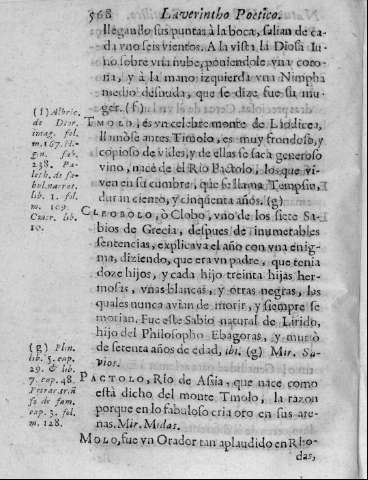 568 Laverintho Poetico.
llegando sus puntas à la boca, salian de ca-
da vno seis vientos. A la vista la Diosa Iu-
no sobre vna nube, poniendole vna coro-
na, y à la mano izquierda vna Nimpha
medio desnuda, que se dize fue su mu-
ger. (f)
TMOLO, es vn celebre monte de
llamòse antes Timolo, es muy frondoso, y
copioso de vides, y de ellas se saca generoso
vino, nace de el Rio Pactolo, los que vi-
ven en su cumbre, que se llama Tempsin,
duran ciento, y cinquenta años. (g)
CLEOBOLO, ò Clobo, vno de los siete Sa-
bios de Grecia, despues de inumerables
sentencias, explicava el año con vna enig-
ma, diziendo, que era vn padre, que tenia
doze hijos, y cada hijo treinta hijas her-
mosas, vnas blancas, y otras negras, las
quales nunca avian de morir, y siempre se
morian. Fue este Sabio natural de Lirido,
hijo del Philosopho Ebagoras, y muriò
de setenta años de edad, ibi. (g) Mir. Sa-
vios.
PACTOLO, Rio de Asia, que nace como
està dicho del monte Tmolo, la razon
porque en lo fabuloso cria oro en sus are-
nas. Mir. Midas.
MOLO, fue vn Orador tan aplaudido en Rho-
das,
(f) Albric.
de Deor.
imag. fol.
m. 167. Hi-
gin. fab.
238.
lib. 1. fol.
m. 109.
lib.
10.
(g) Plin.
lib. 5. cap.
29. & lib.
7. cap. 48.
cap. 3. fol.
m. 128.